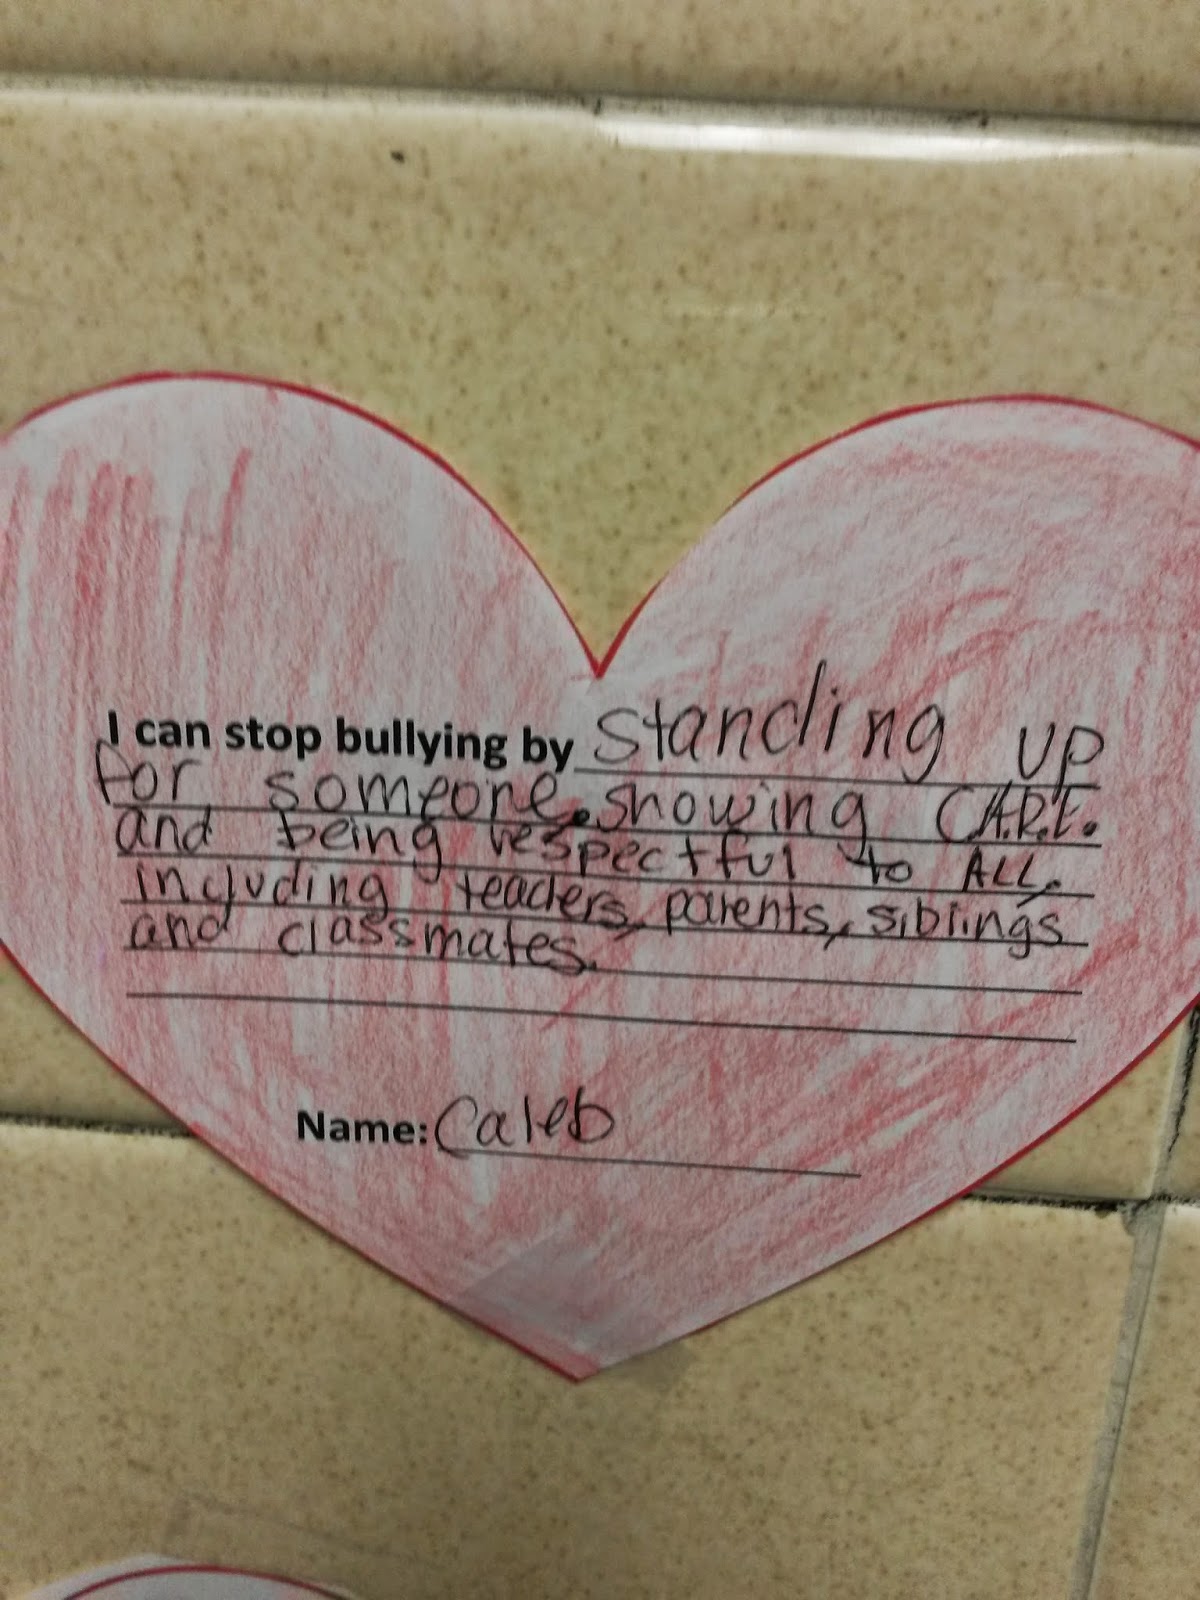 I can stop bullying by standing up
for someone. showing C.A.R.E.
and being respectful to ALL,
including teachers, parents, siblings
and classmates.
Name: Caleb